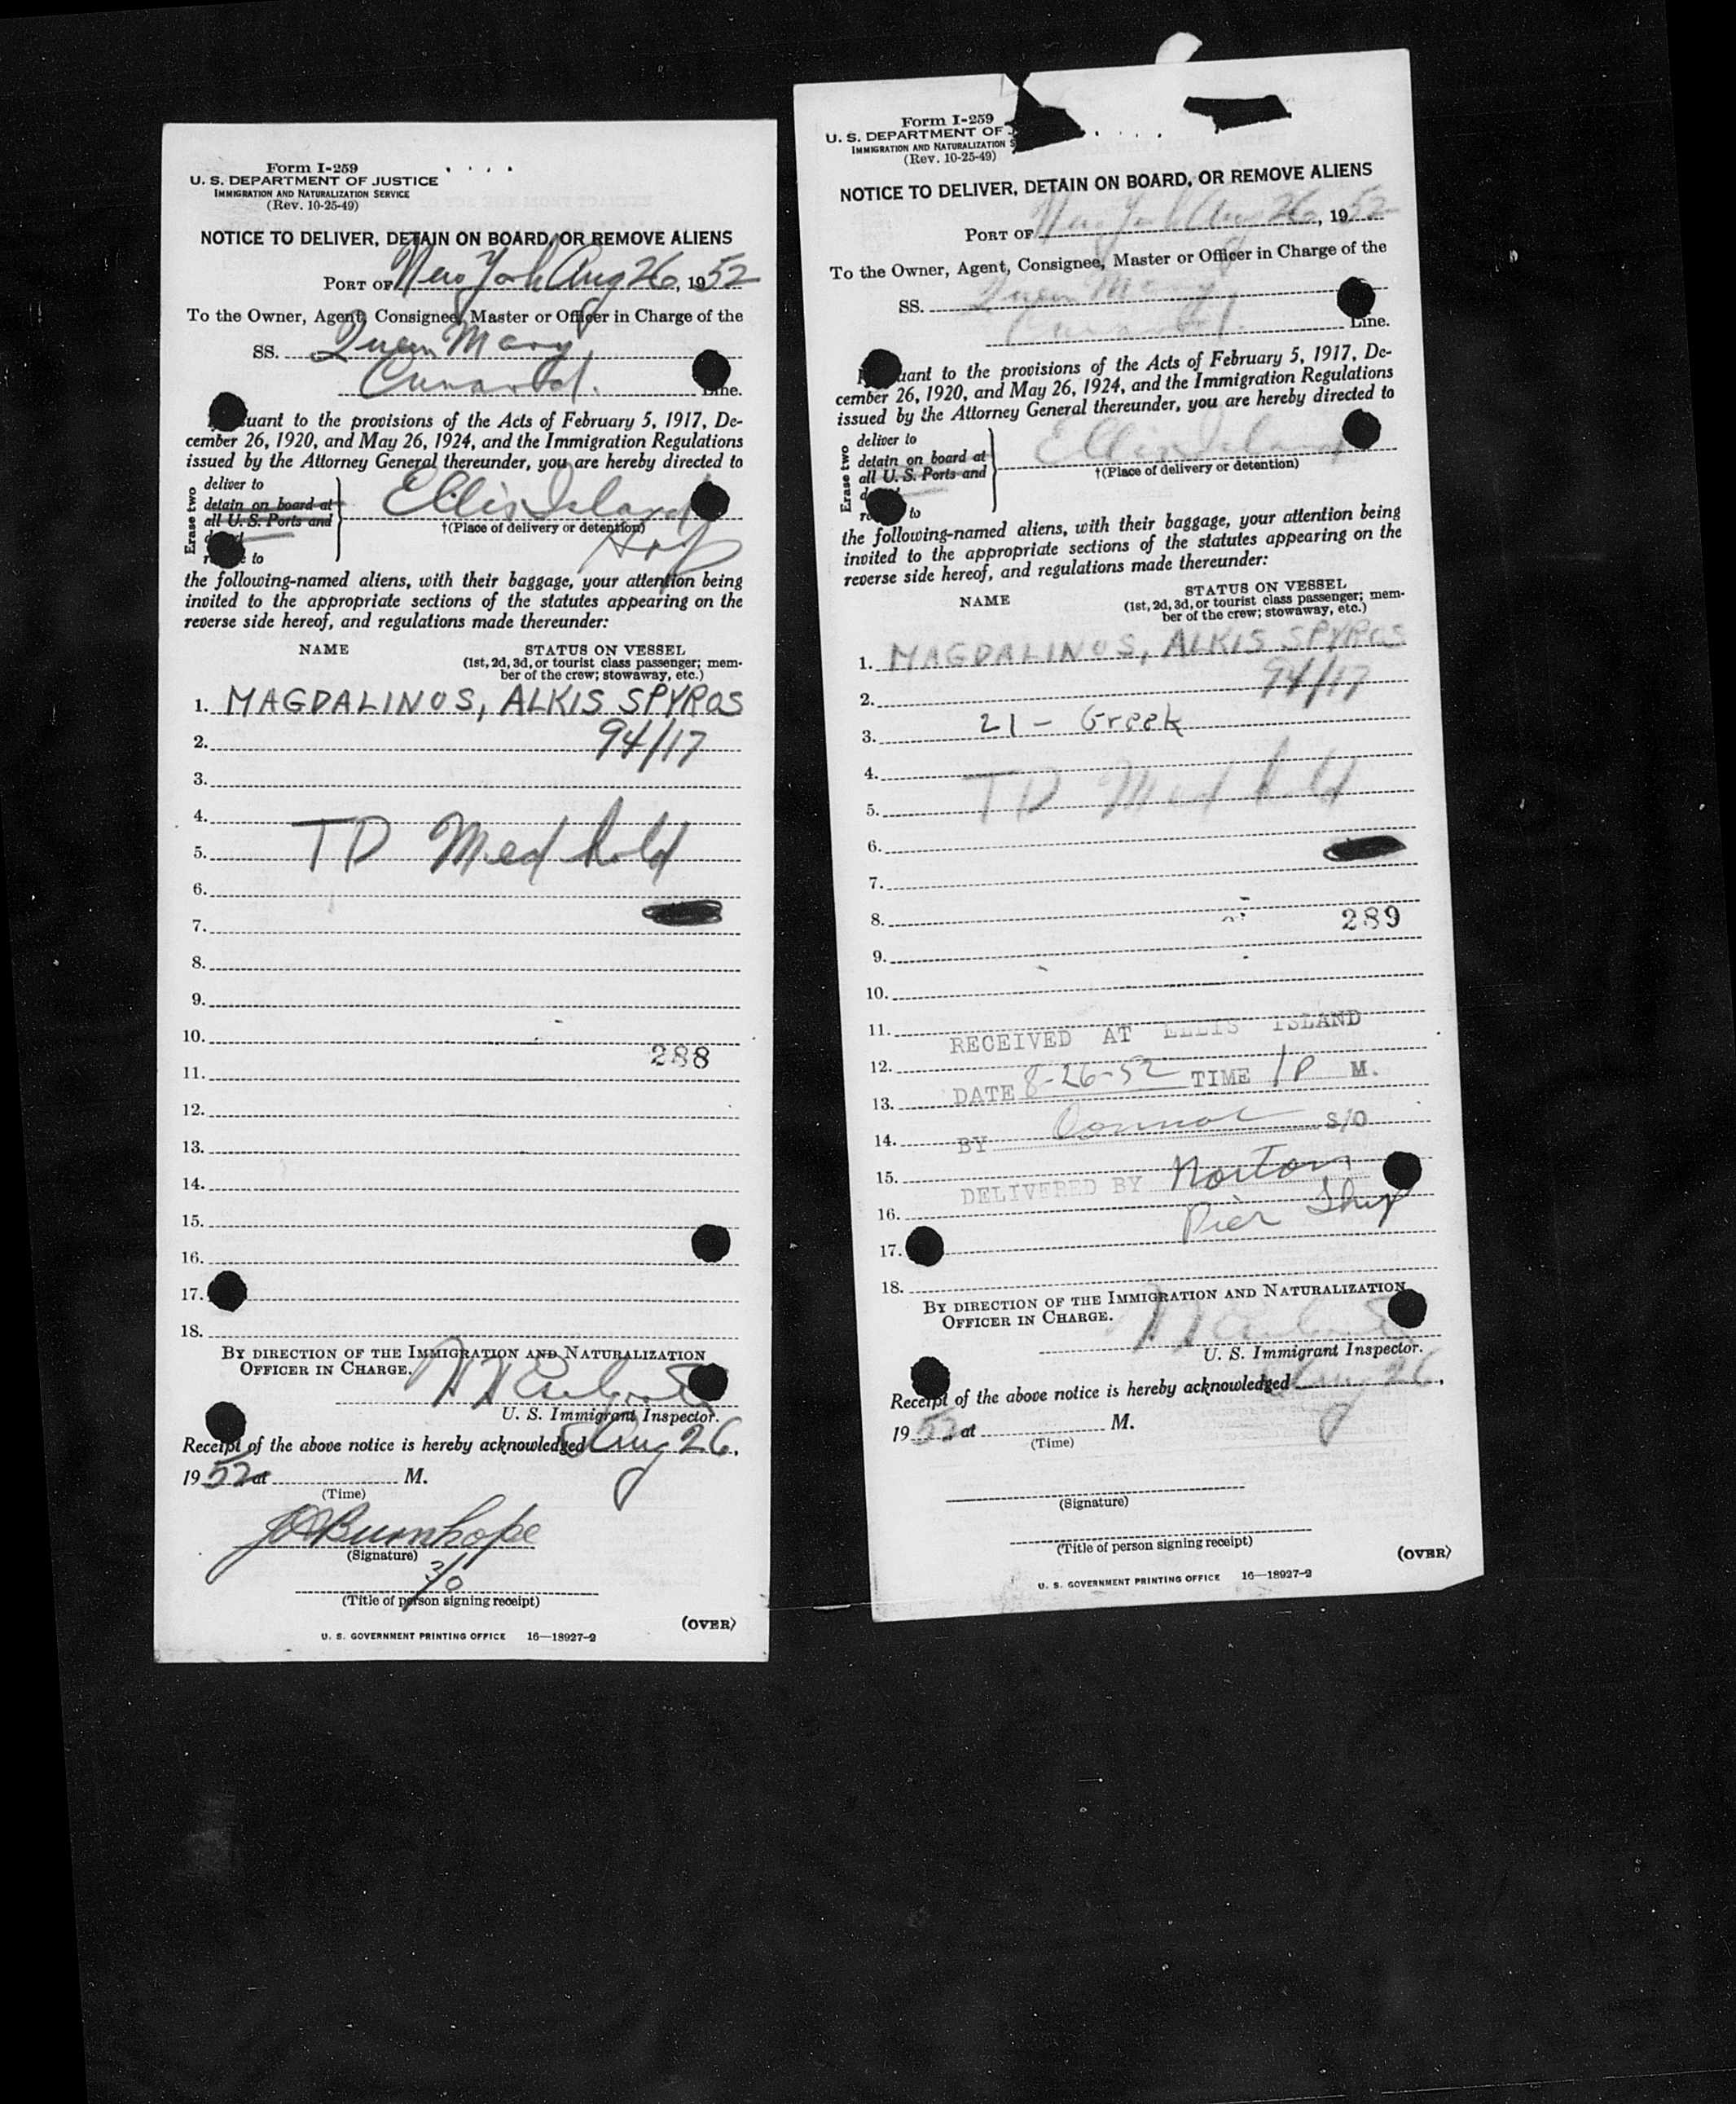 Form I-259
U. S. DEPARTMENT OF JUSTICE
IMMIGRATION AND NATURALIZATION SERVICE
(Rev. 10-25-49)
NOTICE TO DELIVER, DETAIN ON BOARD, OR REMOVE ALIENS
PORT OF New York Aug 26, 1952
To the Owner, Agent, Consignee, Master or Officer in Charge of the
SS. Queen Mary
Cunard. Line.
to the provisions of the Acts of February 5, 1917, De-
cember 26, 1920, and May 26, 1924, and the Immigration Regulations
issued by the Attorney General thereunder, you are hereby directed to
Erase two
deliver to
detain on board at
all U. S. Ports and
to
Ellis Island
†(Place of delivery or detention)
the following-named aliens, with their baggage, your attention being
invited to the appropriate sections of the statutes appearing on the
reverse side hereof, and regulations made thereunder:
NAME STATUS ON VESSEL
(1st, 2d, 3d, or tourist class passenger; mem-
ber of the crew; stowaway, etc.)
1. MAGDALINOS, ALKIS SPYROS
2. 94/17
3.
4.
5. TD Med hold
6.
7.
8.
9.
10.
288
11.
12.
13.
14.
15.
16.
17.
18.
BY DIRECTION OF THE IMMIGRATION AND NATURALIZATION
OFFICER IN CHARGE.
U. S. Immigrant Inspector.
Receipt of the above notice is hereby acknowledged Aug 26,
1952 at M.
(Time)
Burnhope
(Signature)
3/0
(Title of person signing receipt)
(OVER)
U. S. GOVERNMENT PRINTING OFFICE 16—18927-2
Form I-259
U. S. DEPARTMENT OF
IMMIGRATION AND NATURALIZATION
(Rev. 10-25-49)
NOTICE TO DELIVER, DETAIN ON BOARD, OR REMOVE ALIENS
PORT OF New York Aug 26, 1952
To the Owner, Agent, Consignee, Master or Officer in Charge of the
SS. Queen Mary
Cunard. Line.
to the provisions of the Acts of February 5, 1917, De-
cember 26, 1920, and May 26, 1924, and the Immigration Regulations
issued by the Attorney General thereunder, you are hereby directed to
Erase two
deliver to
detain on board at
all U. S. Ports and
to
Ellis Island
†(Place of delivery or detention)
the following-named aliens, with their baggage, your attention being
invited to the appropriate sections of the statutes appearing on the
reverse side hereof, and regulations made thereunder:
NAME STATUS ON VESSEL
(1st, 2d, 3d, or tourist class passenger; mem-
ber of the crew; stowaway, etc.)
1. MAGDALINOS, ALKIS SPYROS
2. 94/17
3. 21 - Greek
4.
5. TD Med hold
6.
7.
8. 289
9.
10.
11.
RECEIVED AT ELLIS ISLAND
12.
DATE 8-26-52 TIME 1 P M.
13.
14.
BY Connor S/O
15.
DELIVERED BY Norton
16. Pier
17.
18.
BY DIRECTION OF THE IMMIGRATION AND NATURALIZATION
OFFICER IN CHARGE.
U. S. Immigrant Inspector.
Receipt of the above notice is hereby acknowledged Aug 26,
1952 at M.
(Time)
(Signature)
(Title of person signing receipt)
(OVER)
U. S. GOVERNMENT PRINTING OFFICE 16—18927-2